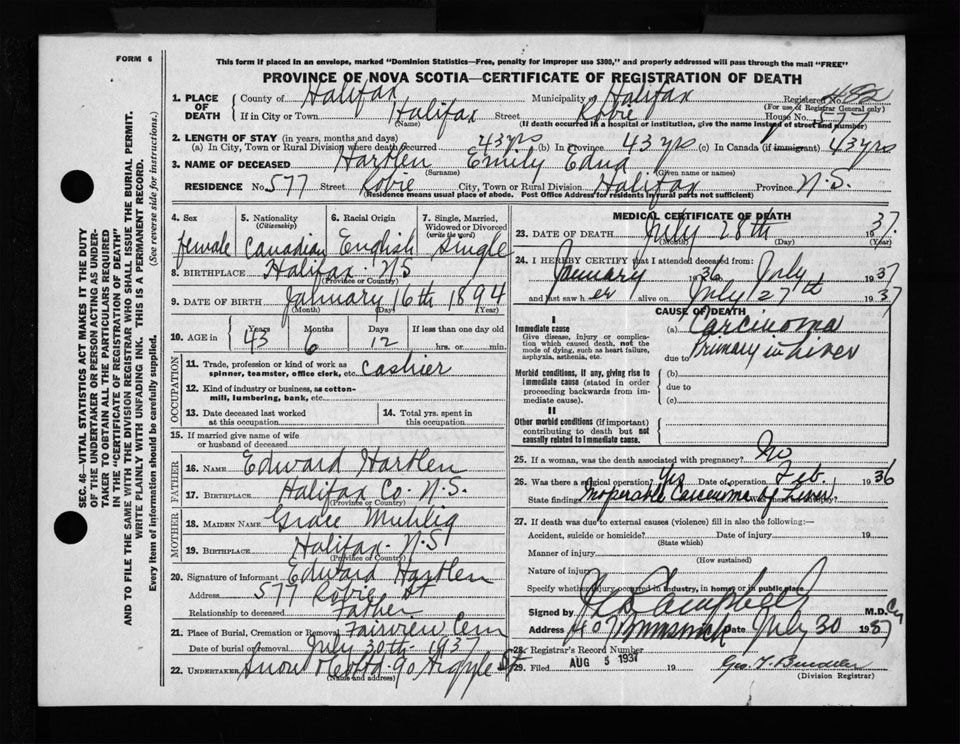 FORM 6
This form if placed in an envelope, marked "Dominion Statistics—Free, penalty for improper use $300," and properly addressed will pass through the mail "FREE"
PROVINCE OF NOVA SCOTIA—CERTIFICATE OF REGISTRATION OF DEATH
SEC. 46—VITAL STATISTICS ACT MAKES IT THE DUTY
OF THE UNDERTAKER OR PERSON ACTING AS UNDER-
TAKER TO OBTAIN ALL THE PARTICULARS REQUIRED
IN THE "CERTIFICATE OF REGISTRATION OF DEATH"
AND TO FILE THE SAME WITH THE DIVISION REGISTRAR WHO SHALL ISSUE THE BURIAL PERMIT.
WRITE PLAINLY WITH UNFADING INK. THIS IS A PERMANENT RECORD.
Every item of information should be carefully supplied. (See reverse side for instructions.)
1. PLACE OF DEATH County of Halifax Municipality of Halifax Registered No.
(For use of Registrar General only)
If in City or Town Halifax Street Robie House No. 577
(Name) (If death occurred in a hospital or institution, give the name instead of street and number)
2. LENGTH OF STAY (in years, months and days)
(a) In City, Town or Rural Division where death occurred 43 yrs (b) In Province 43 yrs (c) In Canada (if immigrant) 43 yrs
3. NAME OF DECEASED Hartlen Emily Edna
(Surname) (Given name or names)
RESIDENCE No. 577 Street Robie City, Town or Rural Division Halifax Province N.S.
(Residence means usual place of abode. Post Office Address for residents in rural parts not sufficient)
4. Sex 5. Nationality (Citizenship) 6. Racial Origin 7. Single, Married, Widowed or Divorced (write the word)
female Canadian English Single
8. BIRTHPLACE Halifax N S
(Province or Country)
9. DATE OF BIRTH January 16th 1894
(Month) (Day) (Year)
10. AGE in Years Months Days If less than one day old
43 6 12 hrs. or min.
OCCUPATION
11. Trade, profession or kind of work as spinner, teamster, office clerk, etc. Cashier
12. Kind of industry or business, as cotton-mill, lumbering, bank, etc.
13. Date deceased last worked at this occupation
14. Total yrs. spent in this occupation
15. If married give name of wife or husband of deceased
FATHER
16. NAME Edward Hartlen
17. BIRTHPLACE Halifax Co. N.S.
(Province or Country)
MOTHER
18. MAIDEN NAME Grace Muhlig
19. BIRTHPLACE Halifax - N.S
(Province or Country)
20. Signature of informant Edward Hartlen
Address 577 Robie St
Relationship to deceased Father
21. Place of Burial, Cremation or Removal Fairview Cem
Date of burial or removal July 30th - 1937
22. UNDERTAKER Snow & Co Ltd - 90 Argyle St
(Name and address)
MEDICAL CERTIFICATE OF DEATH
23. DATE OF DEATH July 28th 1937.
(Month) (Day) (Year)
24. I HEREBY CERTIFY that I attended deceased from:
January 1936 July 1937
and last saw her alive on July 27th 1937
CAUSE OF DEATH
I
Immediate cause
Give disease, injury or complica-
tion which caused death, not the
mode of dying, such as heart failure,
asphyxia, asthenia, etc.
(a) Carcinoma
Primary in Liver
due to
Morbid conditions, if any, giving rise to
immediate cause (stated in order
proceeding backwards from im-
mediate cause).
(b)
due to
(c)
II
Other morbid conditions (if important)
contributing to death but not
causally related to immediate cause.
25. If a woman, was the death associated with pregnancy? No
26. Was there a surgical operation? Yes Date of operation Feb. 1936
State findings Inoperable Carcinoma of Liver
27. If death was due to external causes (violence) fill in also the following:—
Accident, suicide or homicide? Date of injury 19
(State which)
Manner of injury
(How sustained)
Nature of injury
Specify whether injury occurred in industry, in home, or in public place
Signed by Campbell M.D.
Address 407 Brunswick Date July 30 1937
28. Registrar's Record Number
29. Filed AUG 5 1937 19
(Division Registrar)